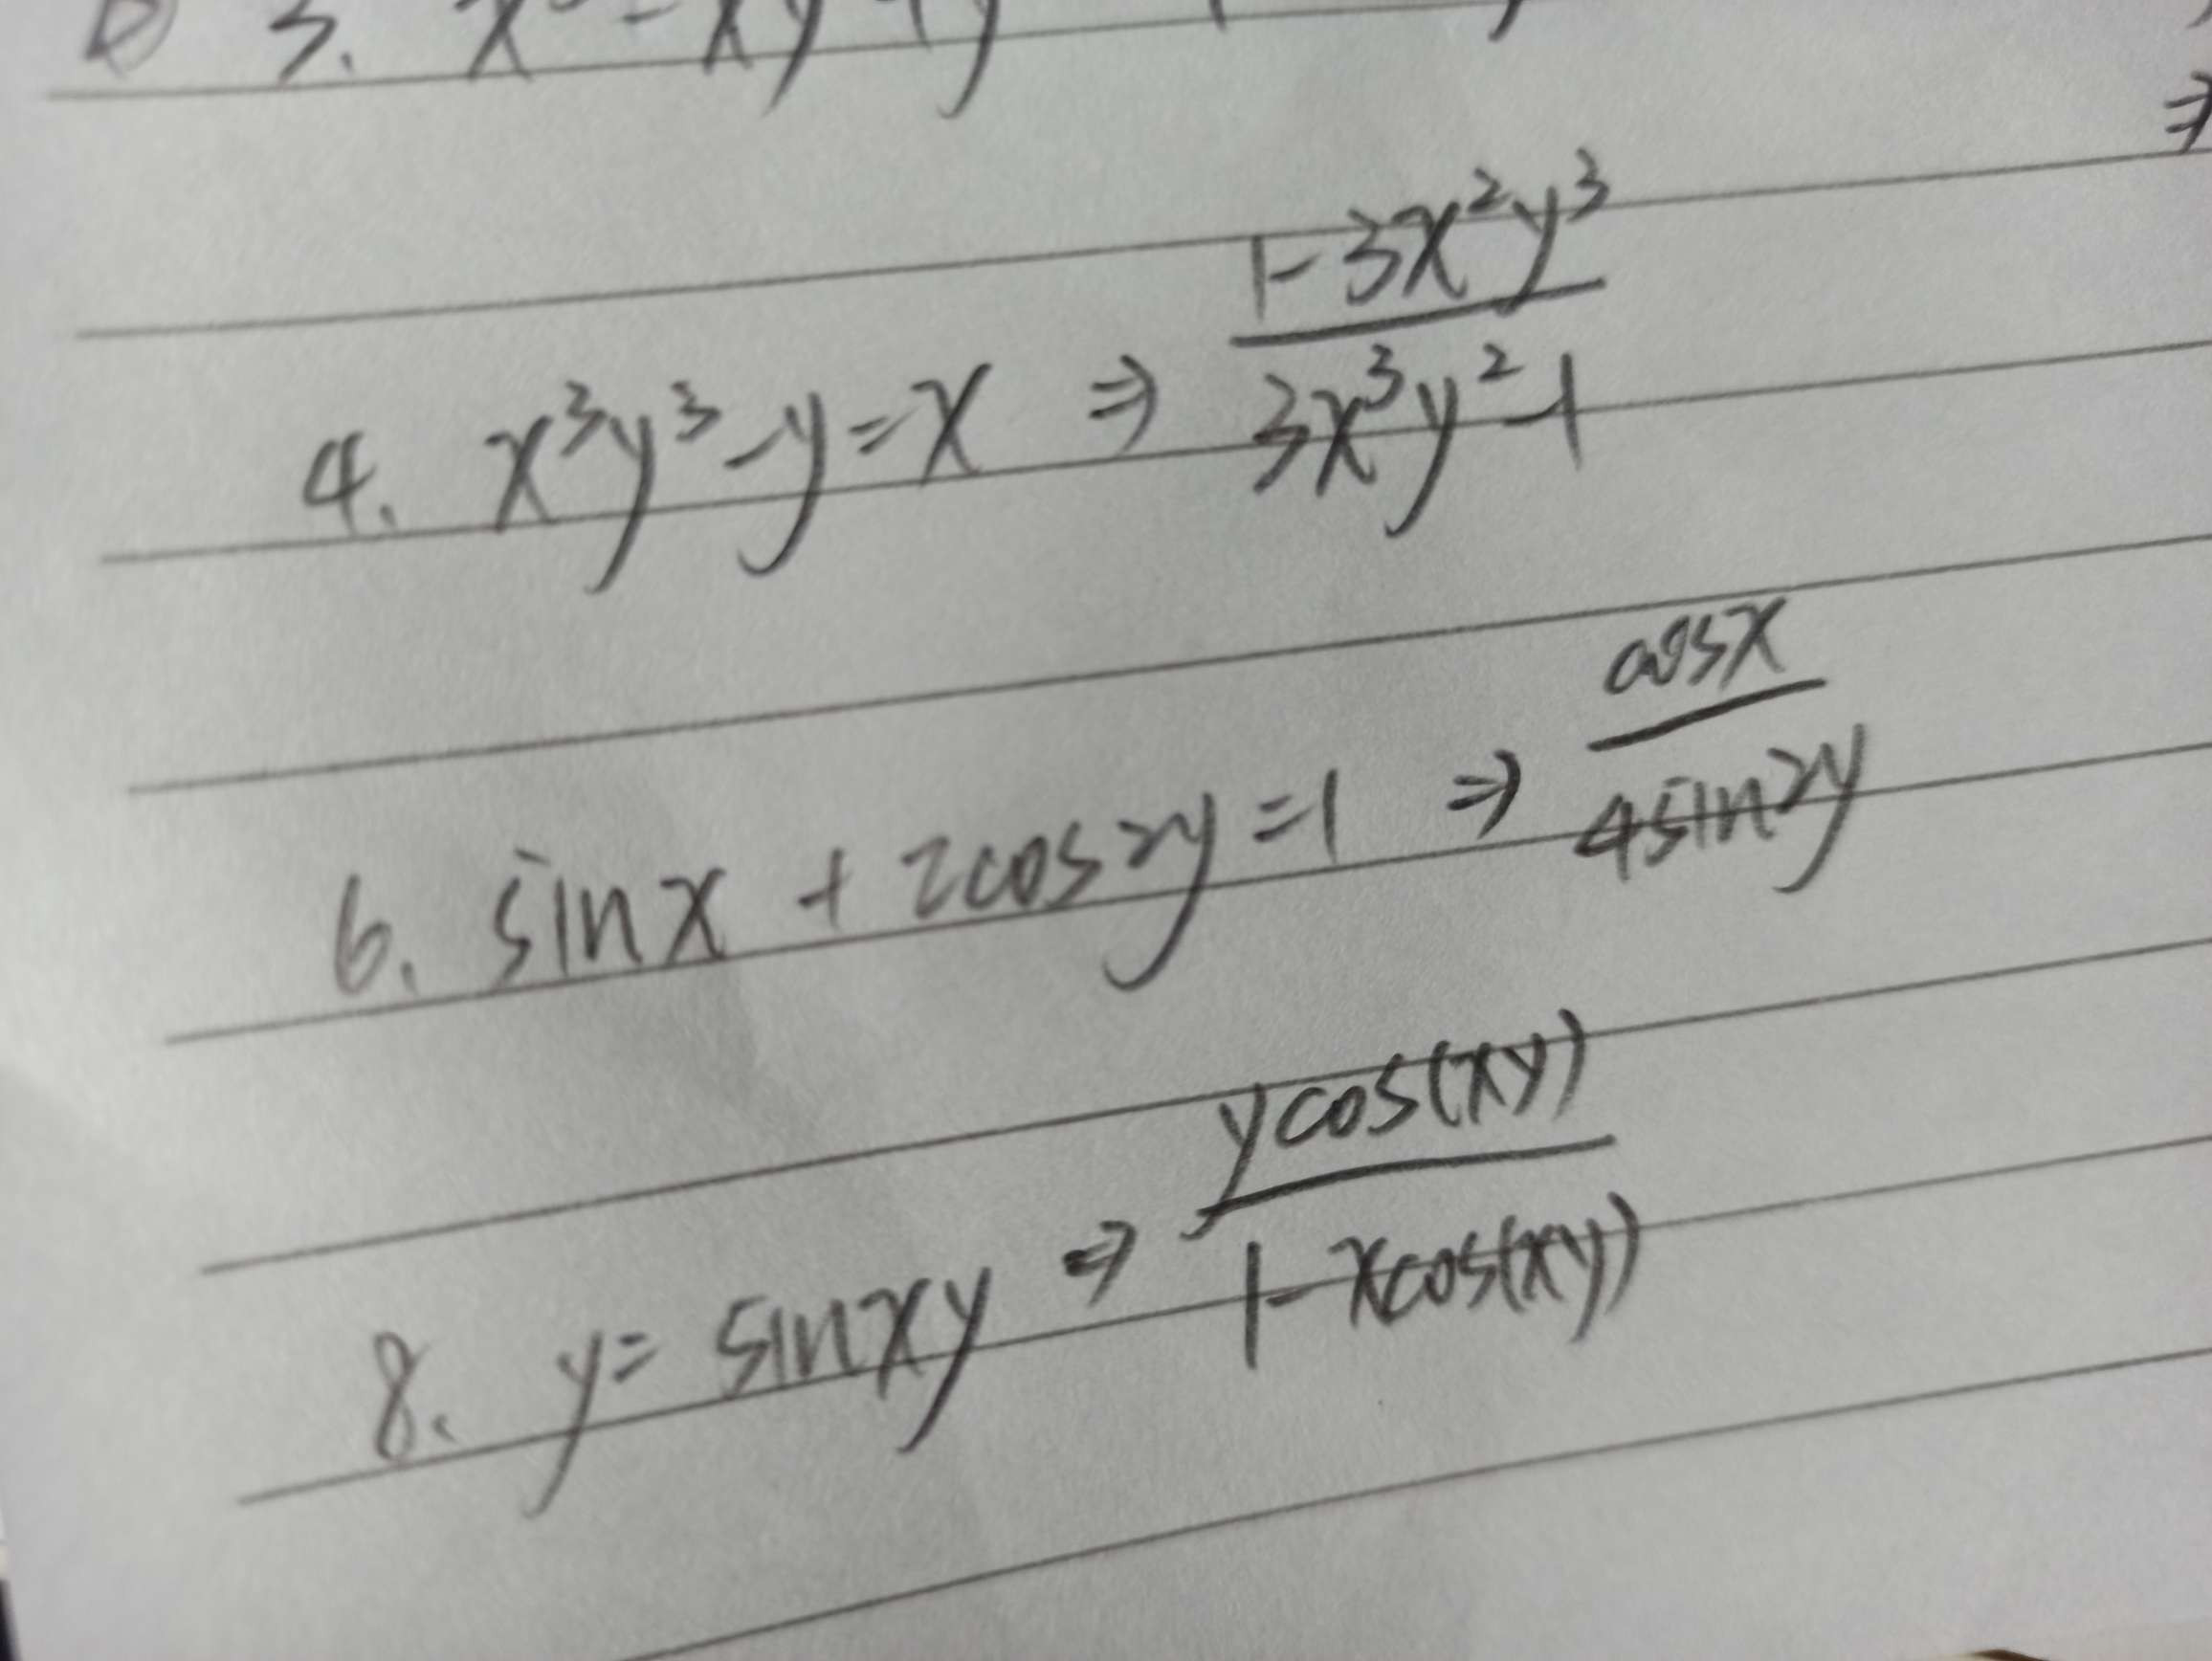 3. x - xy + y
⇒
4. x³y³ - y = x ⇒ (1 - 3x²y³)/(3x³y² - 1)
6. sinx + 2cos2y = 1 ⇒ cosx/(4sin2y)
8. y = sinxy ⇒ ycos(xy)/(1 - xcos(xy))